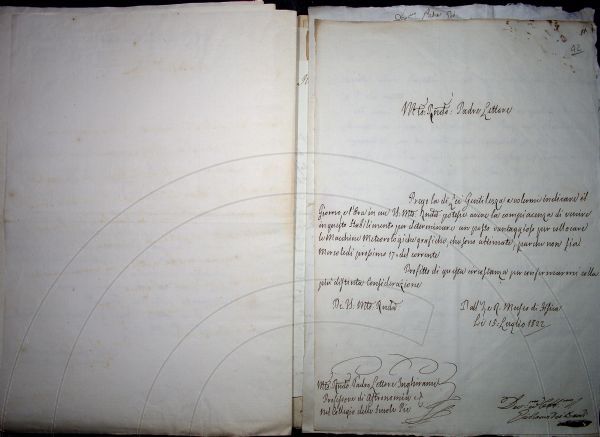 92
Mto: Rndo: Padre Lettore
Prego la di Lei Gentilezza a volermi indicare il
Giorno, e l'Ora in cui V. Mto Rnda potesse avere la compiacenza di venire
in questo Stabilimento per determinare un posto vantaggioso per collocare
le Macchine Meteorologiche grafiche, che sono ultimate, purche non sia
Mercoledi prossimo 17. del corrente
Profitto di questa circostanza per confermarmi colla
più distinta Considerazione
De V. Mto Rnda
Dall' I. e R. Museo di Fisica
Li 15. Luglio 1822
Mto: Rndo: Padre Lettore Inghirami
Professore di Astronomia &
nel Collegio delle Scuole Pie